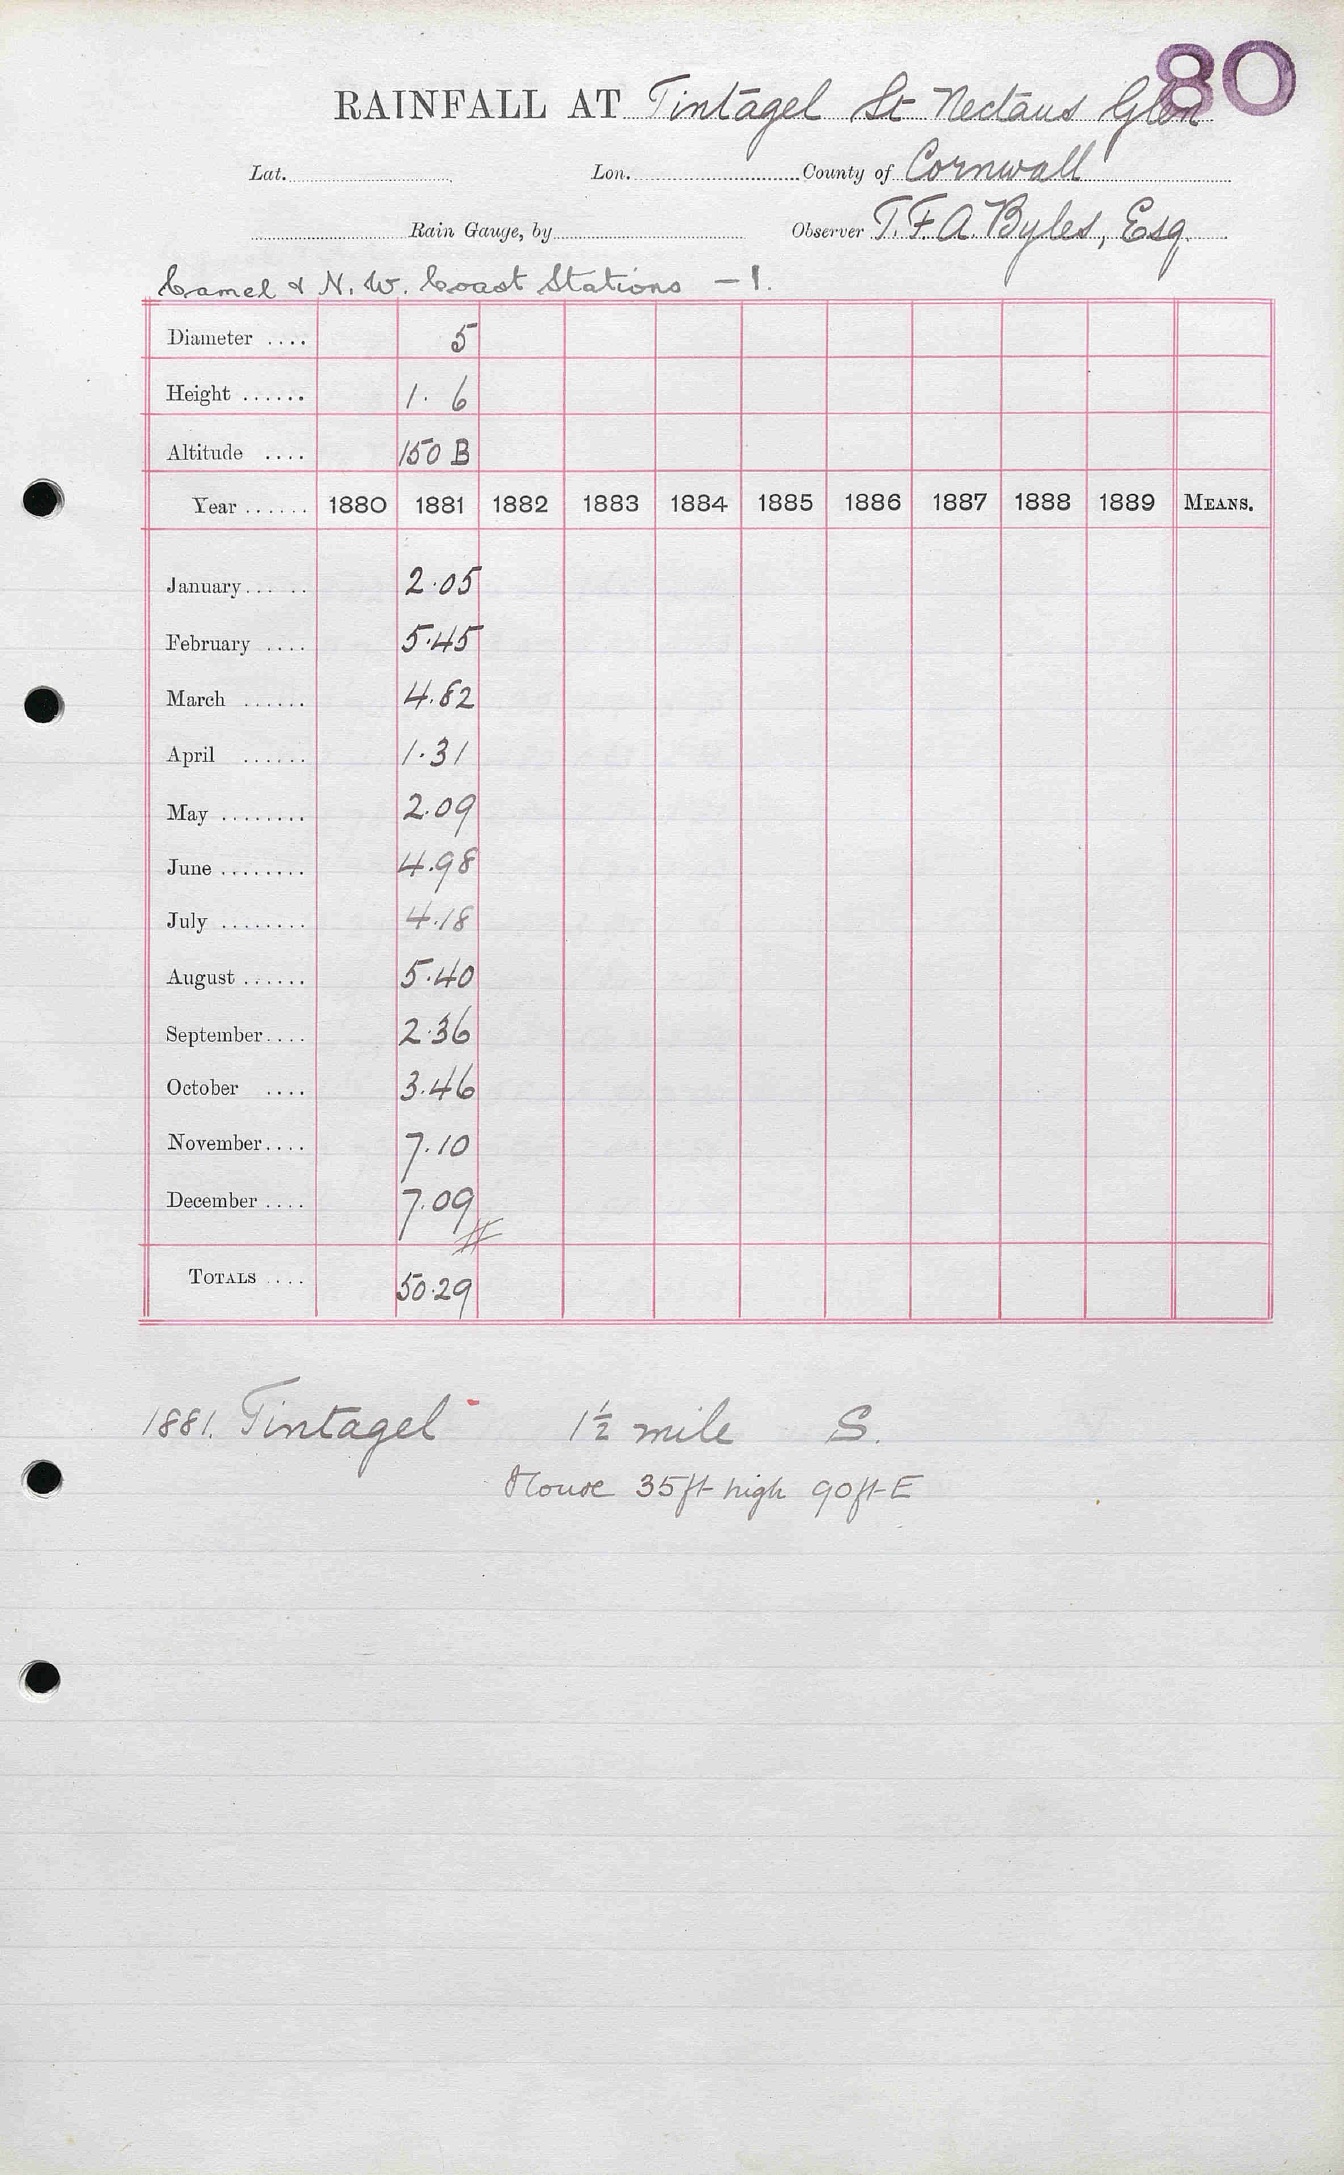 80
RAINFALL AT Tintagel St Nectans Glen
Lat. Lon. County of Cornwall
Rain Gauge, by Observer T. F. A. Byles, Esq.
Camel & N. W. Coast Stations — 1.
Diameter .... 5
Height ...... 1. 6
Altitude .... 150 B
Year ...... 1880 1881 1882 1883 1884 1885 1886 1887 1888 1889 MEANS.
January... .. 2.05
February .... 5.45
March ...... 4.82
April ...... 1.31
May ........ 2.09
June ........ 4.98
July ........ 4.18
August ...... 5.40
September.... 2.36
October .... 3.46
November.... 7.10
December .... 7.09
TOTALS .... 50.29
1881. Tintagel 1½ mile S.
House 35ft high 90ft E